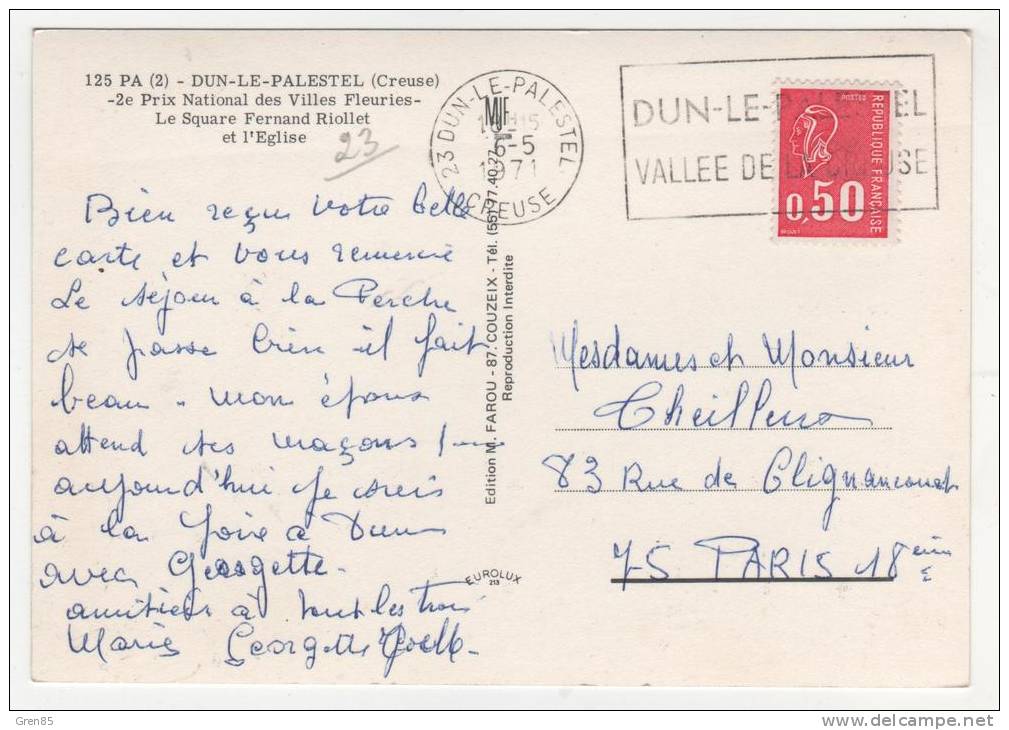 125 PA (2) - DUN-LE-PALESTEL (Creuse)
-2e Prix National des Villes Fleuries-
Le Square Fernand Riollet
et l'Eglise
23
23 DUN-LE-PALESTEL
6-5
1971
CREUSE
DUN-LE-PALESTEL
VALLEE DE LA CREUSE
POSTES
REPUBLIQUE FRANÇAISE
0,50
Bien reçue votre belle
carte et vous remercie
Le séjour à la Perche
se passe bien - il fait
beau - mon époux
attend ses maçons !
aujourd'hui je suis
à la foire a Dun
avec Georgette -
amitiés à tout les trois
Marie Georgette
Edition M. FAROU - 87. COUZEIX - Tél. (55) 97.40.27
Reproduction Interdite
MJF
EUROLUX
213
Mesdames et Monsieur
83 Rue de Clignancourt
75 PARIS 18 eim
Gren85
www.delcampe.net